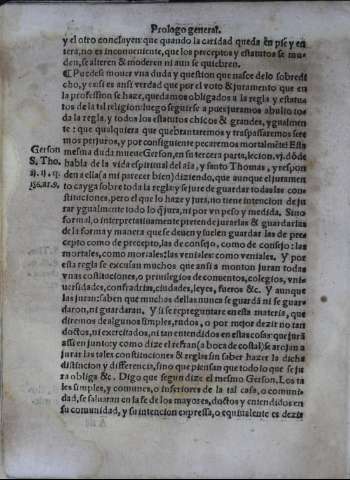 Prologo general.
y el otro concluyen: que quando la caridad queda en pie y en
tera, no es inconueniente, que los preceptos y estatutos se mu-
den, se alteren & moderen ni aun se quiebren.
¶ Puedese mouer vna duda y question que nasce delo sobredi
cho, y es si es ansi verdad que por el voto & juramento que en
la profession se haze, quedamos obligados a la regla y estatu
tos de la tal religion: luego siguese a puejuramos abulto to
da la regla, y todos los estatutos chicos & grandes, ygualmen
te: que qualquiera que quebrantaremos y traspassaremos sere
mos perjuros, y por consiguiente pecaremos mortalmēte. Esta
Gerson
mesma duda mueue Gerson, en su tercera parte, lecion. vj. dōde
S. Tho.
habla de la vida espiritual del aĩa, y santo Thomas, y respon
den a ella (a mi parecer bien) diziendo, que aunque el juramen
to cayga sobre toda la regla: y se jure de guardar todas las con
stituciones, pero el que lo haze y jura, no tiene intencion de ju
rar ygualmente todo lo q̃ jura, ni por vn peso y medida. Sino
formal, o interpretatiuamente pretende jurarlas & guardarlas
de la forma y manera que se deuen y suelen guardar las de pre
cepto como de precepto, las de consejo, como de consejo: las
mortales, como mortales: las veniales: como veniales. Y por
esta regla se escusan muchos que ansi a monton juran todas
vnas costituciones, o priuilegios de conuentos, colegios, vni-
uersidades, confradrias, ciudades, leyes, fueros &c. Y aunque
las juran: saben que muchos dellas nunca se guardā ni se guar-
daron, ni guardaran. Y si se repreguntare en esta materia, que
diremos de algunos simples, rudos, o por mejor dezir no tan
doctos, ni exercitados, ni tan entendidos en ellas cosas: que jurā
assi en junto (y como dize el refran (a boca de costal) se arrojan a
jurar las tales constituciones & reglas sin saber hazer la dicha
distincion y differencia, sino que piensan que todo lo que se ju
ra obliga &c. Digo que segun dize el mesmo Gerson. Los ta
les simples, y comunes, o inferiores de la tal casa, o comuni-
dad, se saluaran en la fe de los mayores, doctos y entendidos en
su comunidad, y su intencion expressa, o equiualente es dezir